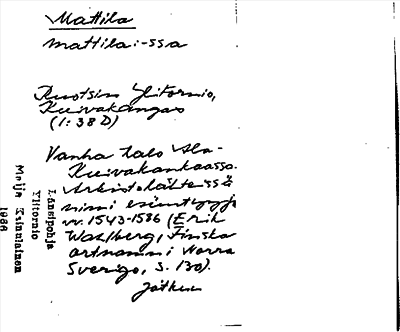 Mattila
Mattila: -ssa
Ruotsin Ylitornio,
Kuivakangas
(1:38 D)
Vanha talo Ala-
Kuivakankaassa.
Arkistolähteissä
nimi esiintyy jo
vv. 1543-1586 (Erik
Wahlberg, Finska
ortnamn i Norra
Sverige, s. 130).
Jatkuu
Länsipohja
Ylitornio
Maija
1986